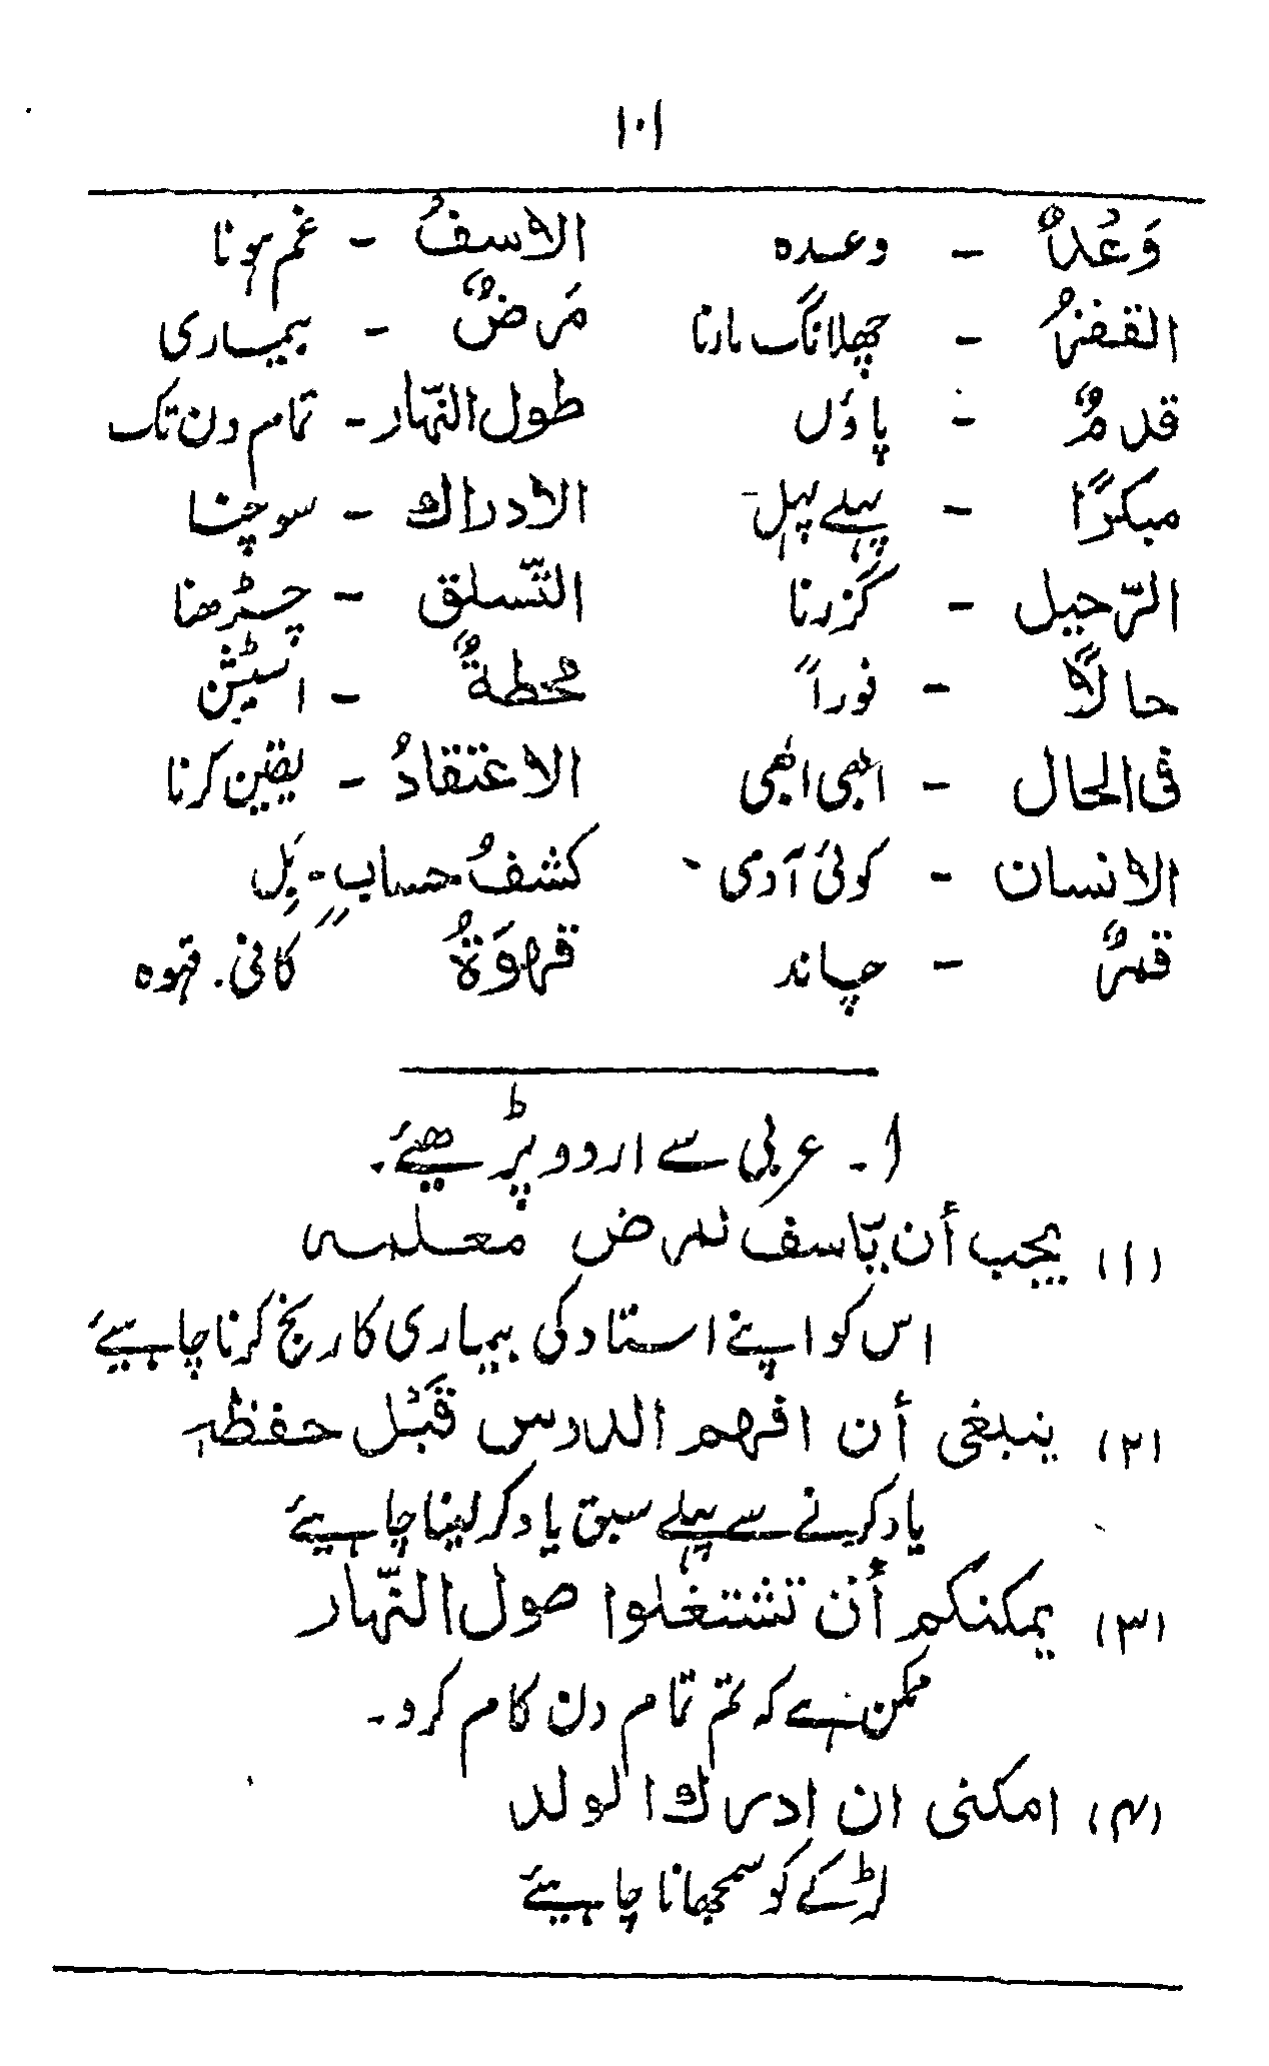 ۱۰۱
وَعُدٌ - وعدہ الاسفُ - غم ہونا
القفزُ - چھلانگ مارنا مَرضٌ - بیماری
قدمٌ - پاؤں طول النّهار - تمام دن تک
مبكرًا - پہلے پہل - الادراك - سوچنا
الرّحيل - گزرنا التّسلق - چڑھنا
حالاً - فوراً محُطةٌ - اسٹیشن
فى الحال - ابھی ابھی الاعتقادُ - یقین کرنا
الانسان - کوئی آدمی - كشفُ حسابٍ - بِل
قمرٌ - چاند قهوَةُ کافی . قہوہ
۱ - عربی سے اردو پڑھیئے -
(۱) يجب أن يّاسف لمرض معلمہ
اس کو اپنے استاد کی بیماری کا رنج کرنا چاہیئے
(۲) ينبغى أن افهم الدرس قَبْل حفظہ
یاد کرنے سے پہلے سبق یاد کر لینا چاہیئے
(۳) يمكنكم أن تشتغلوا طول النّهار
ممکن ہے کہ تم تمام دن کام کرو -
(۴) امكننى ان ادرك الولد
لڑکے کو سمجھانا چاہیئے